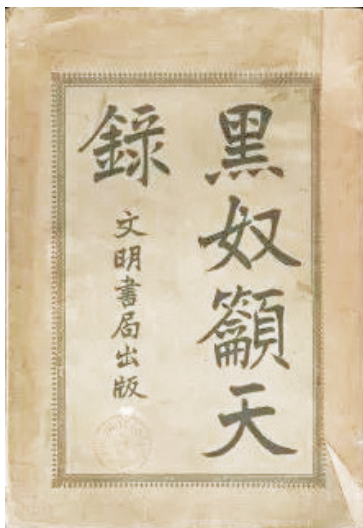 黑奴籲天
錄
文明書局出版